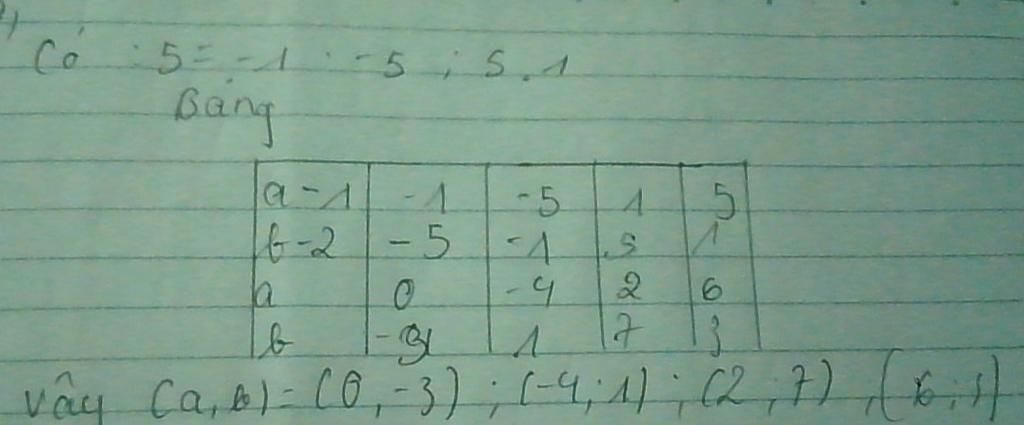 Có : 5 = -1 . -5 ; 5 . 1
Bảng
a - 1 -1 -5 1 5
b - 2 -5 -1 5 1
a 0 -4 2 6
b -3 1 7 3
Vây (a, b) = (0, -3) ; (-4; 1) ; (2; 7) , (6;